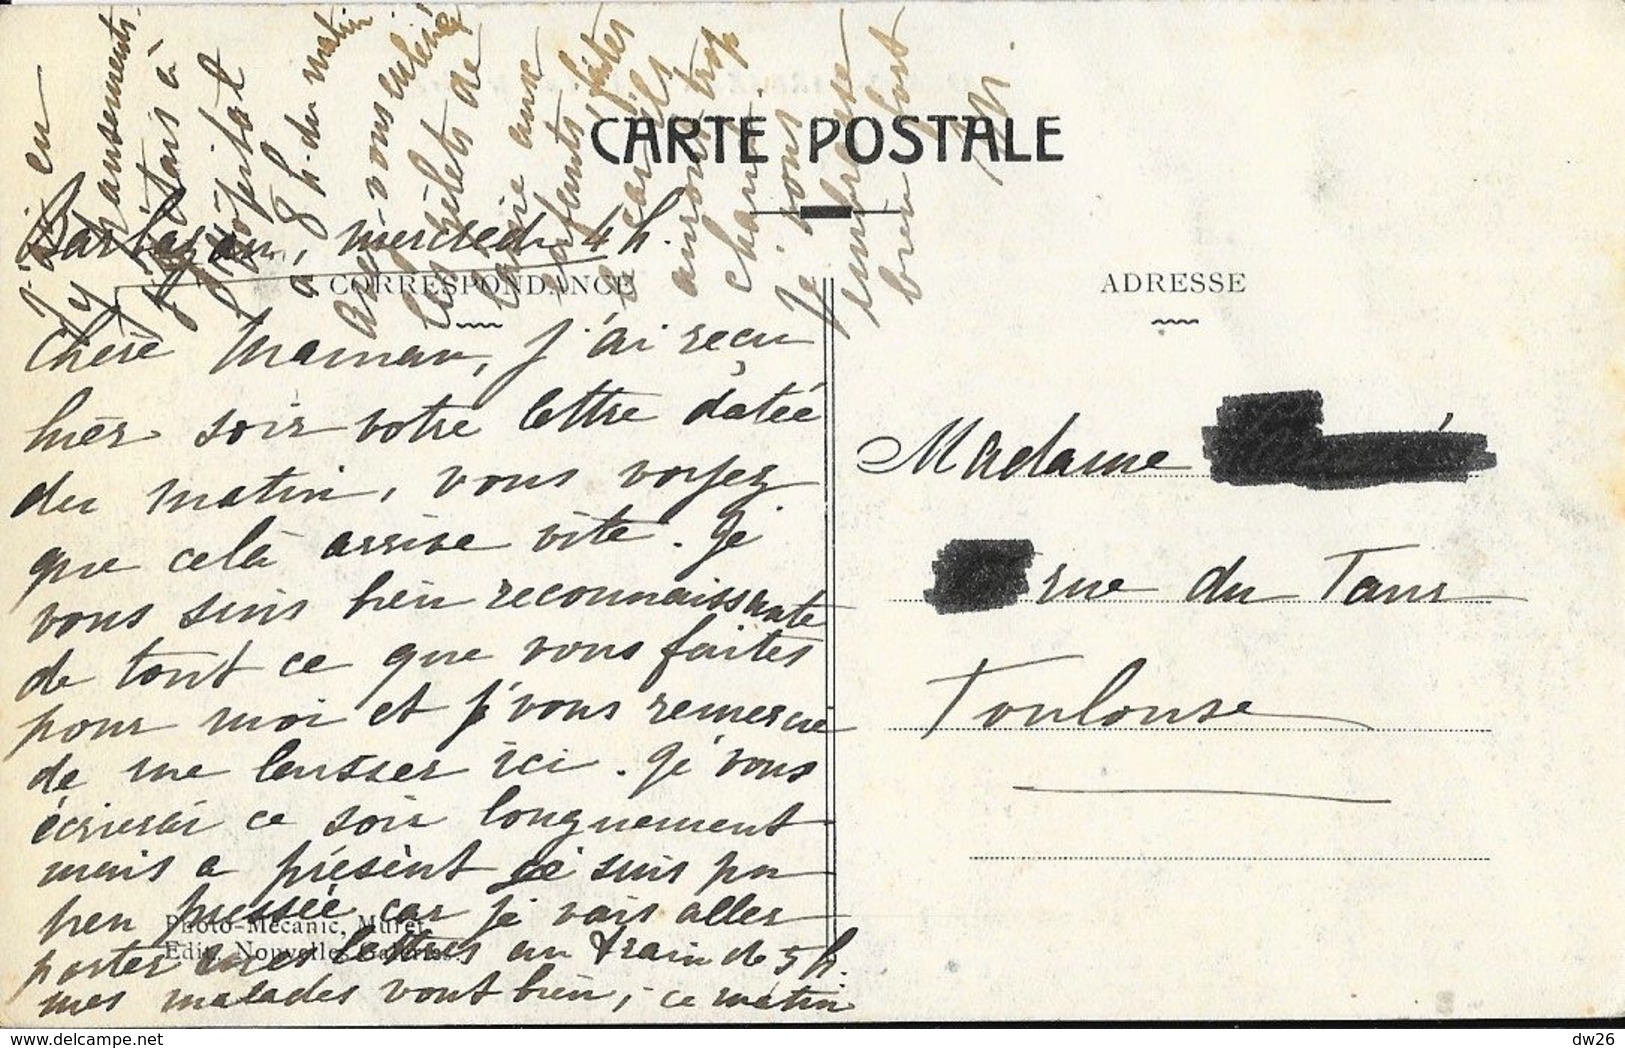 CARTE POSTALE
CORRESPONDANCE
ADRESSE
Barbazan, mercredi 4 h.
Chère Maman, j'ai reçu
hier soir votre lettre datée
du matin, vous voyez
que celà arrive vite. Je
vous suis bien reconnaissante
de tout ce que vous faites
pour moi et je vous remercie
de me laisser ici. Je vous
écrierai ce soir longuement
mais a présent je suis un
peu pressée car je vais aller
porter mes lettres au train de 5 h.
mes malades vont bien, ce matin
j'ai eu
pansements.
j'y étais à
l'hôpital
a 8 h. du matin
avez-vous enlevé
les gilets de
laine aux
enfants faites
le car ils
auront trop
chaud
Je vous
embrasse
bien fort
M.
Madame
rue du Taur
Toulouse
Photo-Mécanic, Muret.
Edit. Nouvelles Galeries.
www.delcampe.net
dw26